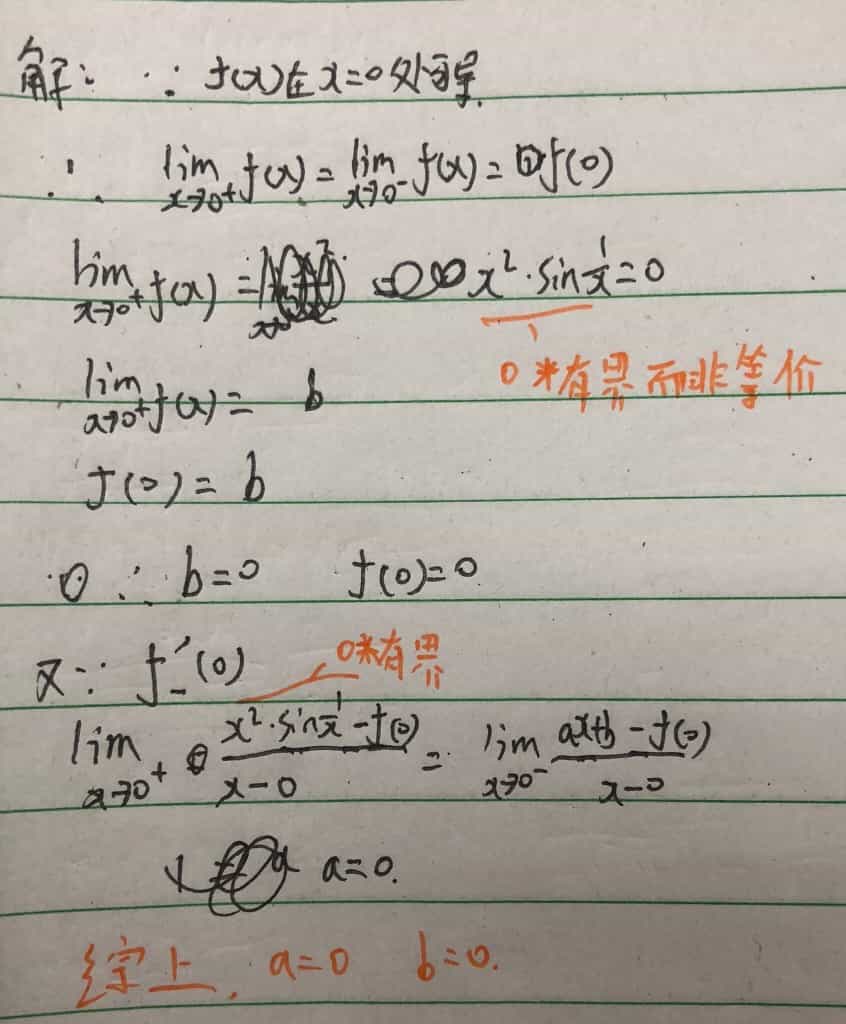 解: ∵ f(x)在x=0处可导.
∴ lim x→0+ f(x) = lim x→0- f(x) = f(0)
lim x→0+ f(x) = x²·sin 1/x = 0
0*有界而非等价
lim x→0+ f(x) = b
f(0) = b
∴ b=0 f(0)=0
又∵ f'-(0)
0*有界
lim x→0+ (x²·sin 1/x - f(0))/(x-0) = lim x→0- (ax+b - f(0))/(x-0)
a=0.
综上, a=0 b=0.